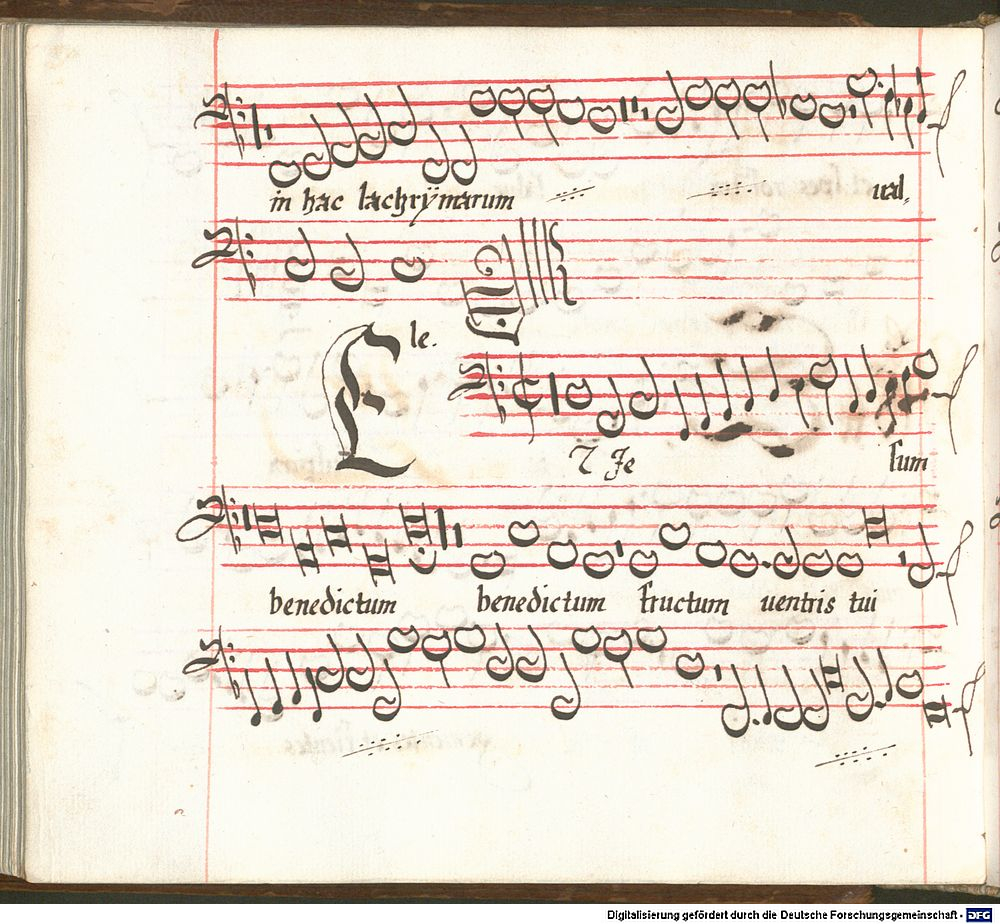 in hac lachrÿmarum ual-
le.
E
T Je sum
benedictum benedictum fructum uentris tui
Digitalisierung gefördert durch die Deutsche Forschungsgemeinschaft - DFG